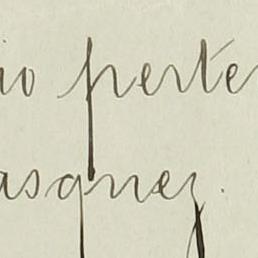 io perte
asquez.